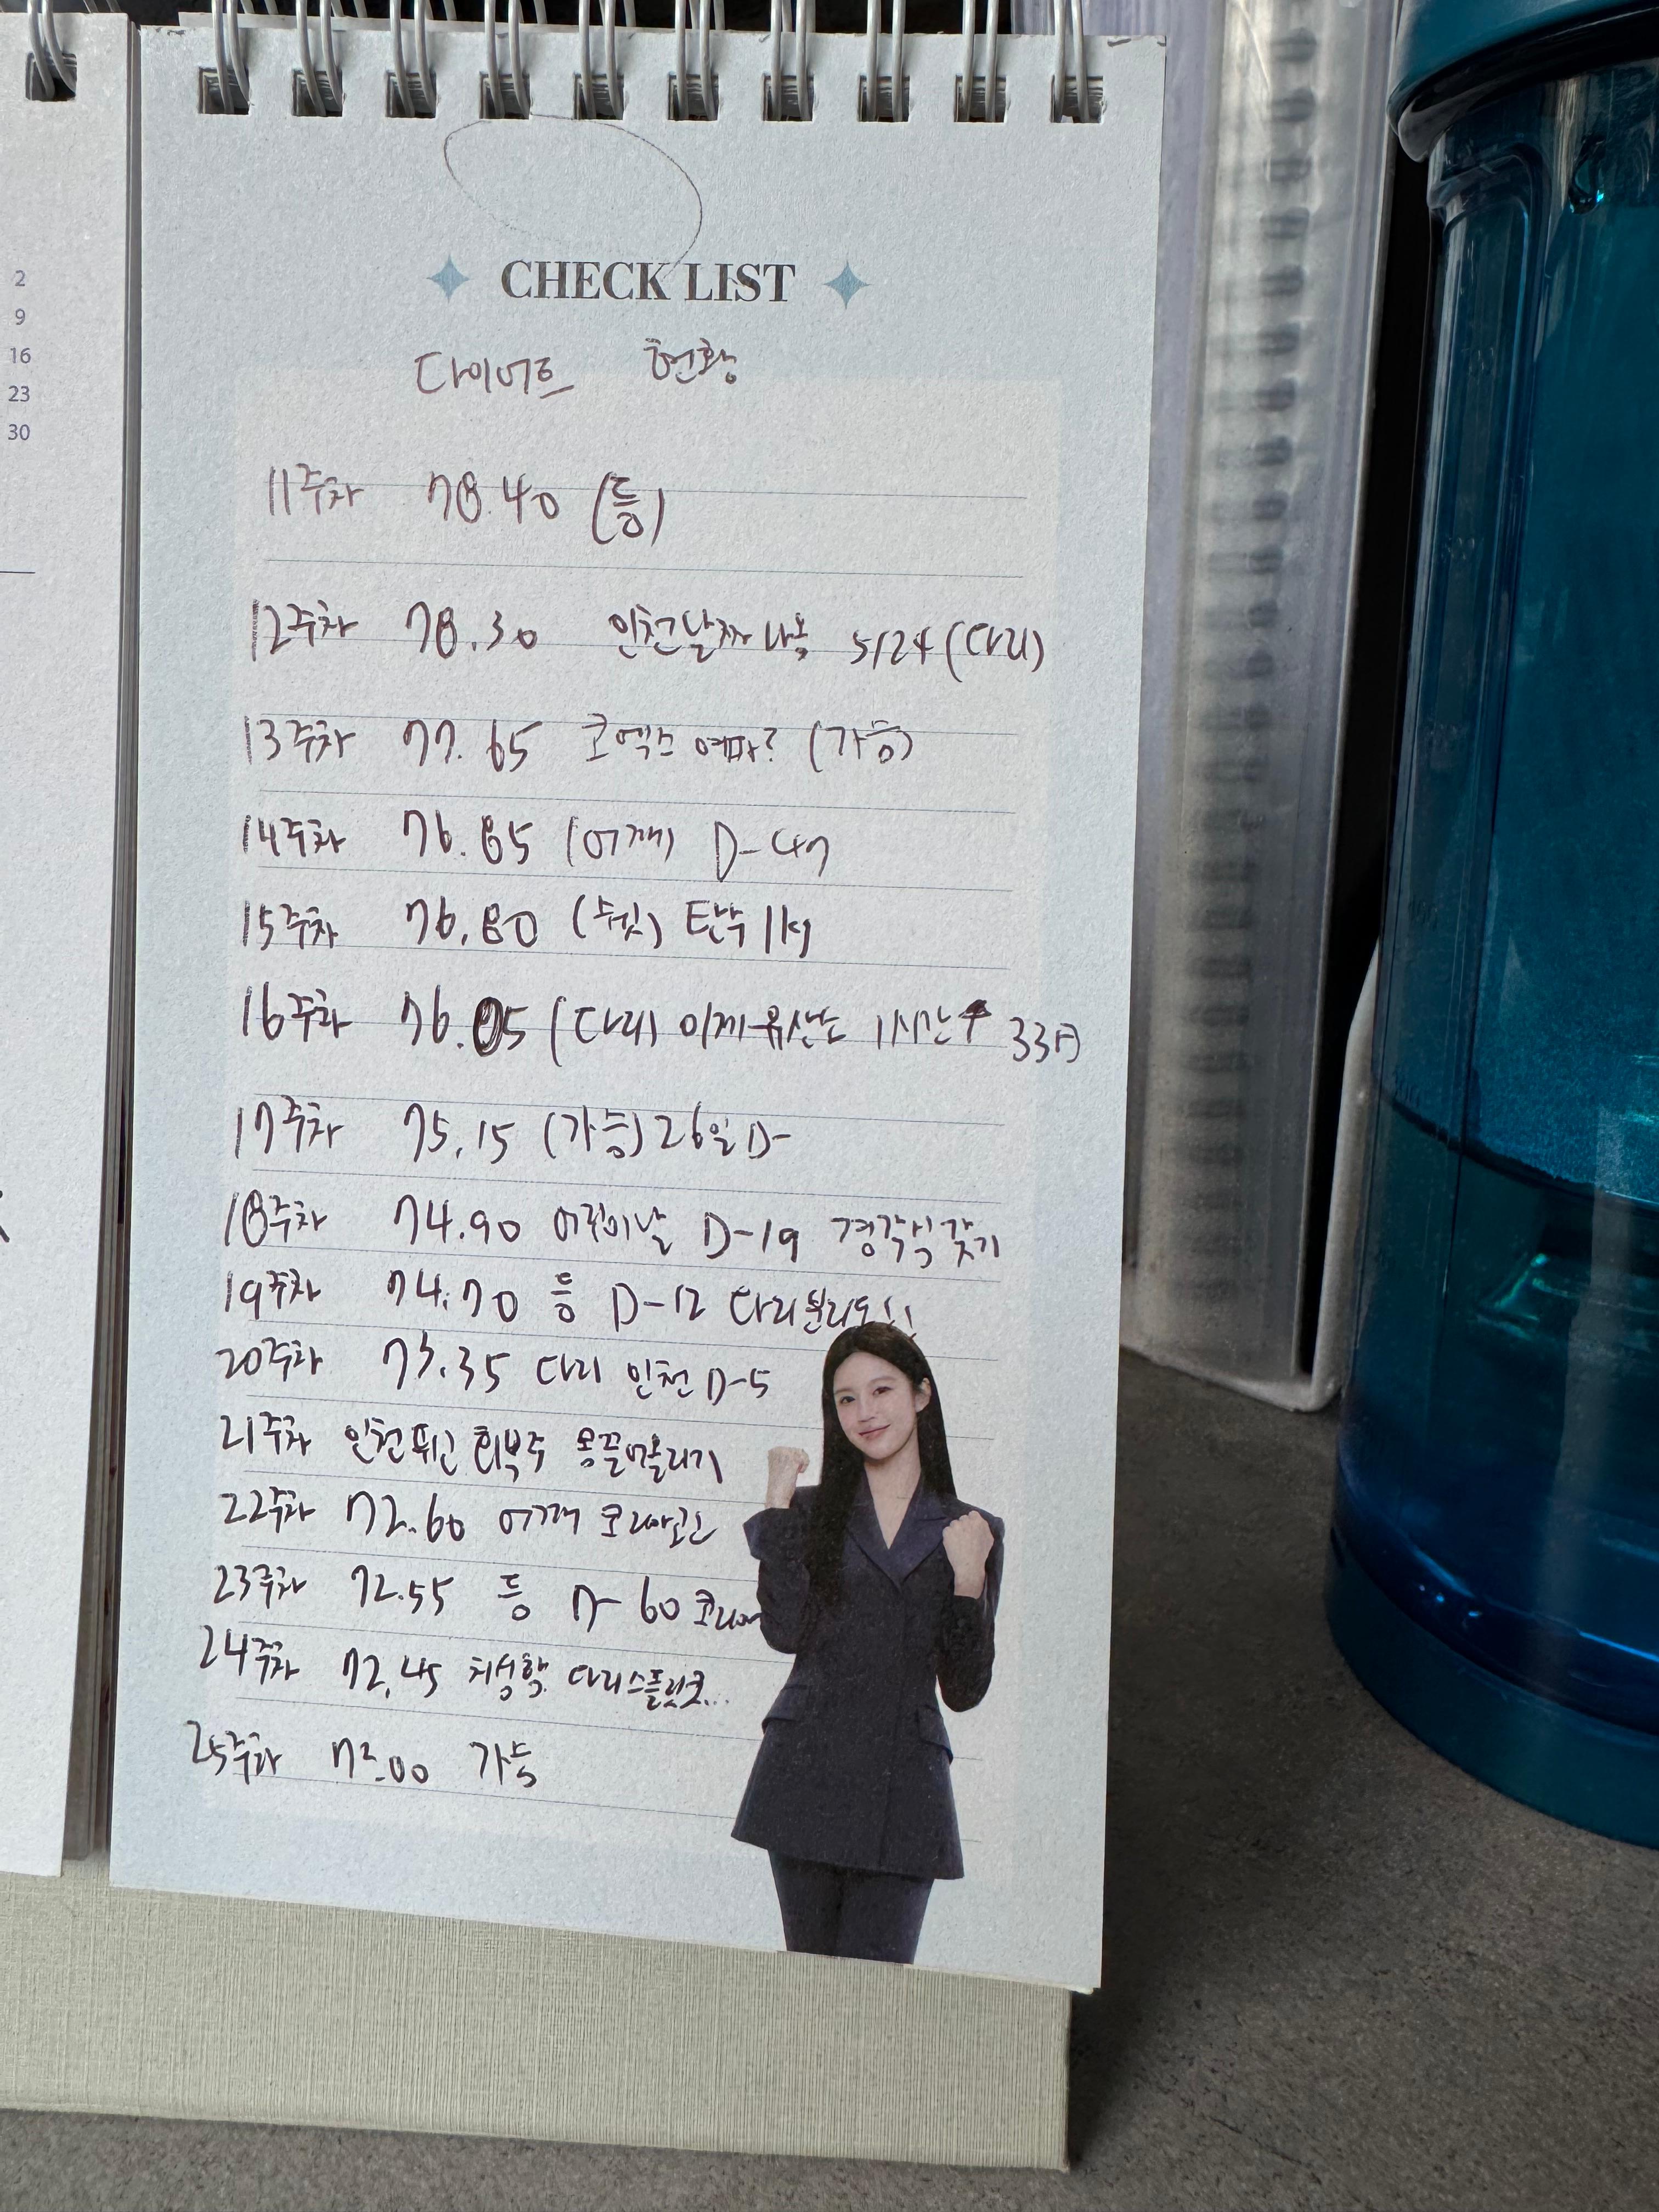 2
9
16
23
30
CHECK LIST
다이어트 현황
11주차 78.40 (등)
12주차 78.30 인천날짜나옴 5/24 (다리)
13주차 77.65 코엑스 여파? (가슴)
14주차 76.85 (어깨) D-47
15주차 76.80 (휴식) 탄수 1kg
16주차 (다리) 이제 유산소 1시간↑ 33日
17주차 75.15 (가슴) 26일 D-
18주차 74.90 어린이날 D-19 경각심갖기
19주차 74.70 등 D-12 다리분리도
20주차 73.35 다리 인천 D-5
21주차 인천뛰고 회복주 몸끌어올리기
22주차 72.60 어깨
23주차 72.55 등 D-60
24주차 72.45 다리스플릿
25주차 가슴